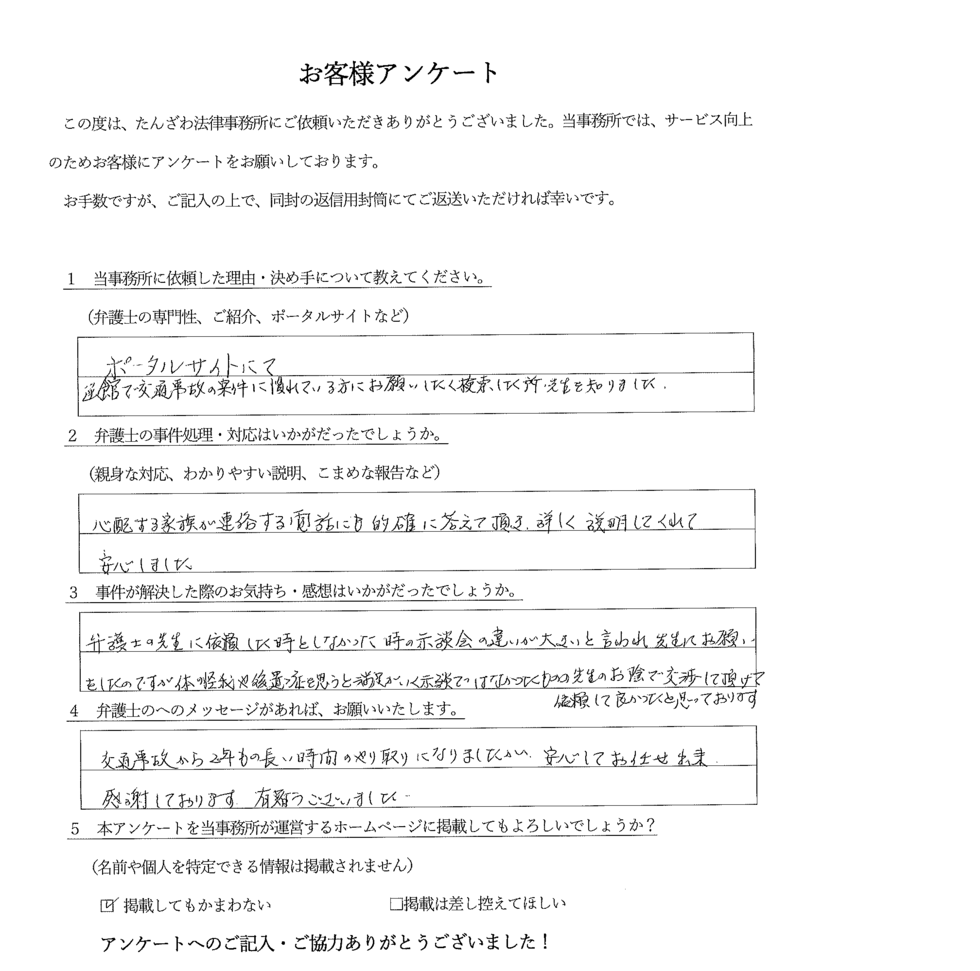 お客様アンケート
この度は、たんざわ法律事務所にご依頼いただきありがとうございました。当事務所では、サービス向上
のためお客様にアンケートをお願いしております。
お手数ですが、ご記入の上で、同封の返信用封筒にてご返送いただければ幸いです。
1 当事務所に依頼した理由・決め手について教えてください。
(弁護士の専門性、ご紹介、ポータルサイトなど)
ポータルサイトにて
函館で交通事故の案件に慣れている方にお願いしたく検索した所、先生を知りました。
2 弁護士の事件処理・対応はいかがだったでしょうか。
(親身な対応、わかりやすい説明、こまめな報告など)
心配する家族が連絡する電話にも的確に答えて頂き、詳しく説明してくれて
安心しました
3 事件が解決した際のお気持ち・感想はいかがだったでしょうか。
弁護士の先生に依頼した時としなかった時の示談金の違いが大きいと言われ先生にお願い
をしたのですが体の怪我や後遺症を思うと満足がいく示談ではなかったものの先生のお陰で交渉して頂けて
依頼して良かったと思っております
4 弁護士のへのメッセージがあれば、お願いいたします。
交通事故から2年もの長い時間のやり取りになりましたが、安心してお任せ出来
感謝しております。有難うございました。
5 本アンケートを当事務所が運営するホームページに掲載してもよろしいでしょうか?
(名前や個人を特定できる情報は掲載されません)
☑掲載してもかまわない □掲載は差し控えてほしい
アンケートへのご記入・ご協力ありがとうございました!